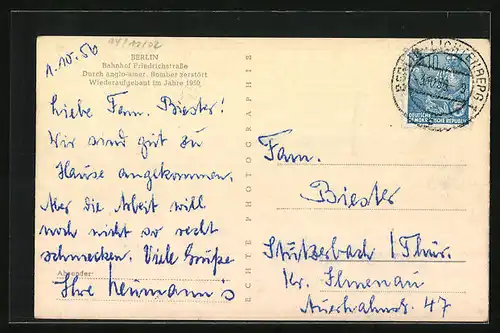 04/12/02
1.10.56
BERLIN
Bahnhof Friedrichstraße
Durch anglo-amer. Bomber zerstört
Wiederaufgebaut im Jahre 1950
Liebe Fam. Biester!
Wir sind gut zu
Hause angekommen.
Aber die Arbeit will
noch nicht so recht
schmecken. Viele Grüße
Absender:
Ihre Neumann's
ECHTE PHOTOGRAPHIE
LICHTENBERG
10
DEUTSCHE
DEMOKRATISCHE REPUBLIK
Fam.
Biester
Stützerbach /Thür.
Kr. Ilmenau
Auerhahnstr. 47